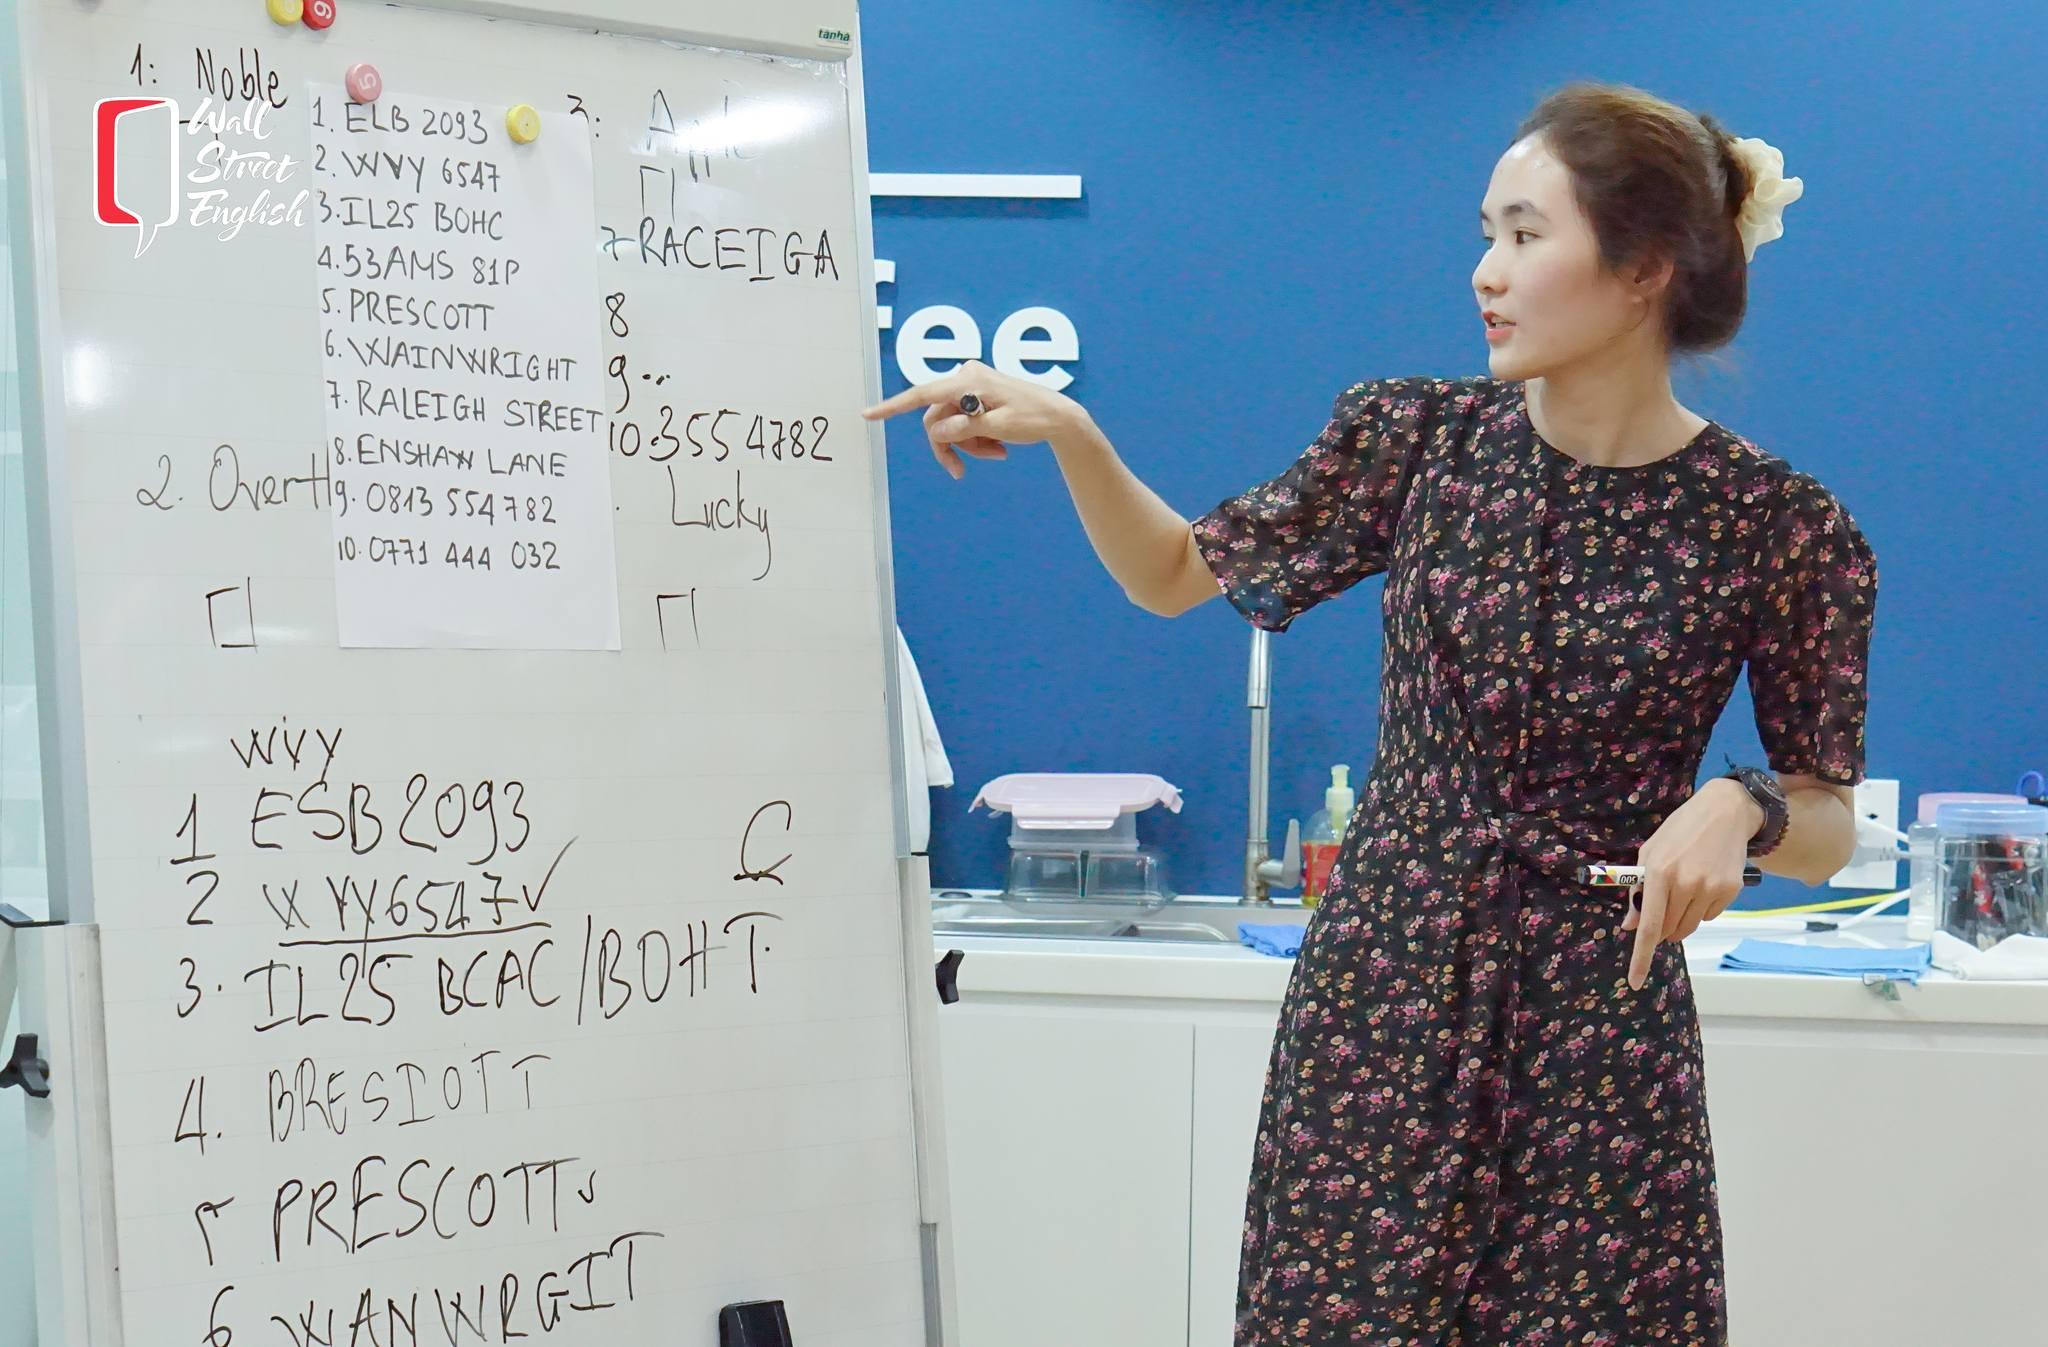 tânhà
1: Noble
Wall
Street
English
1. ELB 2093
2. WVY 6547
3. IL25 BOHC
4. 53AMS 81P
5. PRESCOTT
6. WAINWRIGHT
7. RALEIGH STREET
8. ENSHAW LANE
9. 0813 554 782
10. 0771 444 032
3: Apple
7 RACEIGA
8
9...
10. 3554782
2. OverH
Lucky
fee
WVY
1 ESB 2093
2 WVY6547✓
3. IL25 BCAC/BOHT
C
4. BRESIOTT
PRESCOTT
6 WANWRGIT
500